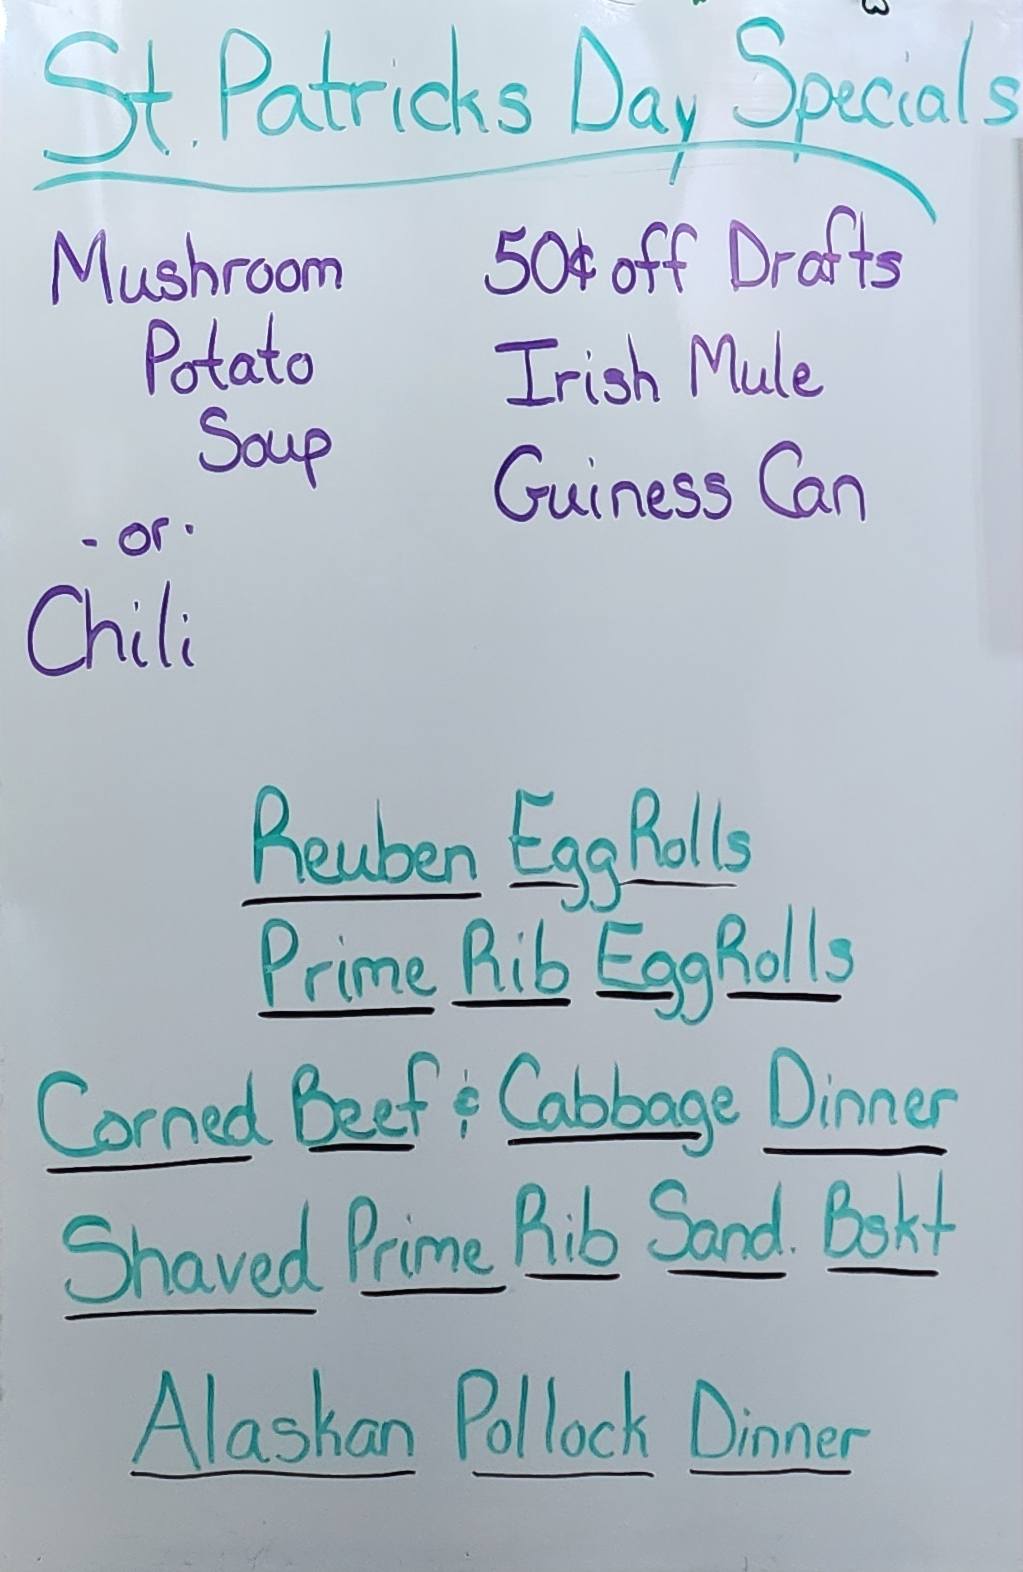 St. Patricks Day Specials
Mushroom
Potato
Soup
- or -
Chili
50¢ off Drafts
Irish Mule
Guiness Can
Reuben Egg Rolls
Prime Rib Egg Rolls
Corned Beef & Cabbage Dinner
Shaved Prime Rib Sand. Bskt
Alaskan Pollock Dinner